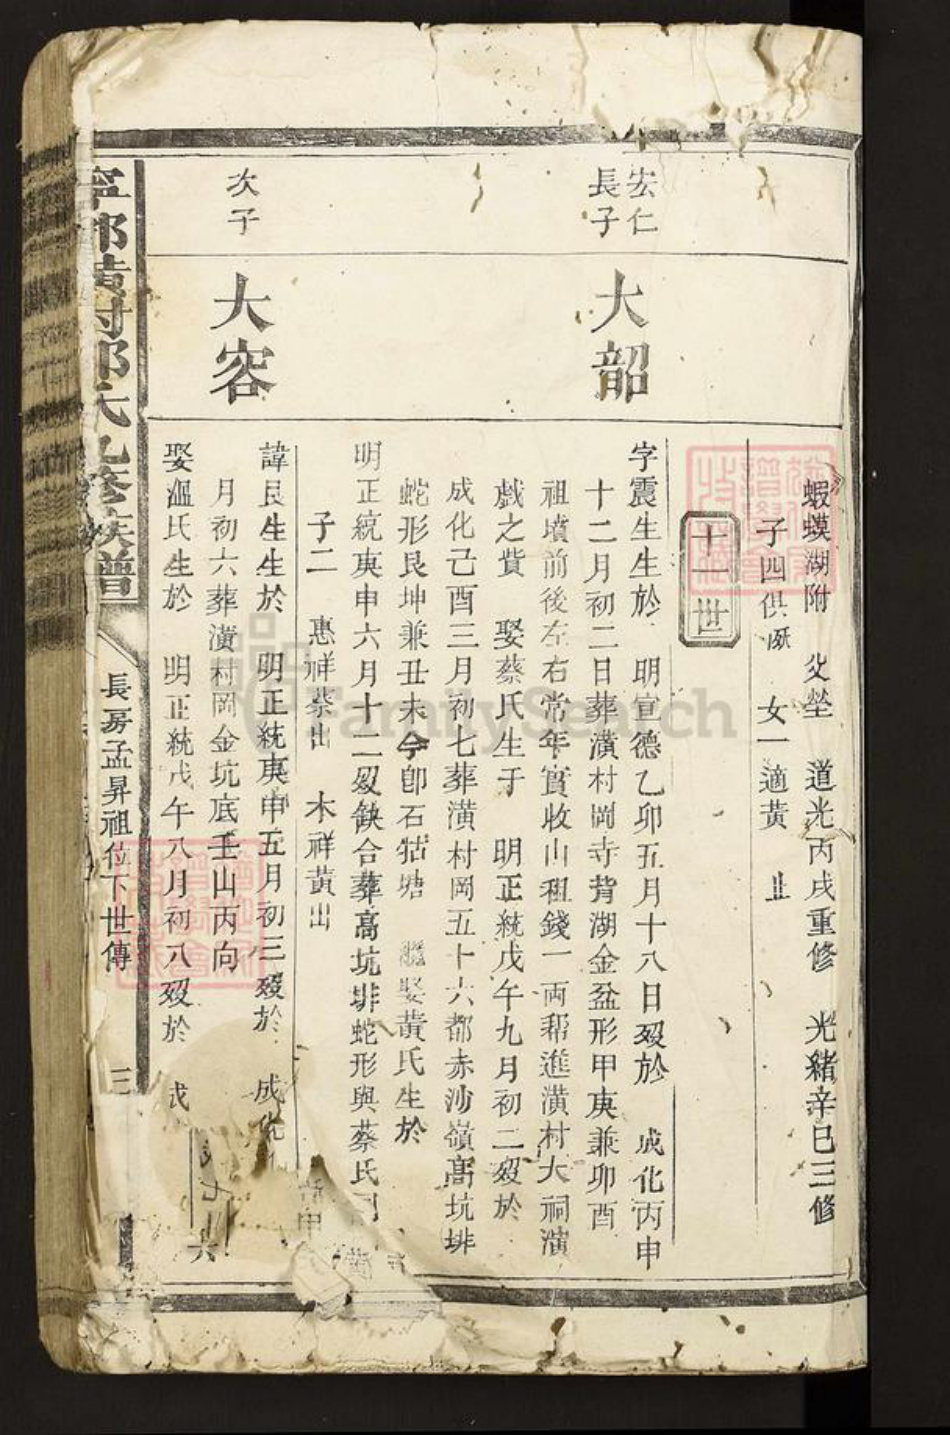 蝦蟆湖附　父塋　道光丙戌重修　光緒辛巳三修
子四俱殀　女一適黃　止
十一世
宏仁
長子
大韶
字震生生於　明宣德乙卯五月十八日歿於　成化丙申
十二月初二日葬潢村岡寺背湖金盆形甲庚兼卯酉
祖墳前後左右常年實收山租錢一両帮進潢村大祠演
戲之貲　娶蔡氏生于　明正統戊午九月初二歿於
成化己酉三月初七葬潢村岡五十六都赤沙嶺高坑埪
蛇形艮坤兼丑未今卽石牯塘　繼娶黄氏生於
明正統庚申六月十二歿缺合葬高坑埪蛇形與蔡氏
子二　惠祥蔡出　木祥黄出
次子
大容
諱艮生生於　明正統庚申五月初三歿於　成化
月初六葬潢村岡金坑底壬山丙向
娶溫氏生於　明正統戊午八月初八歿於
長房孟昇祖位下世傳
三
FamilySearch